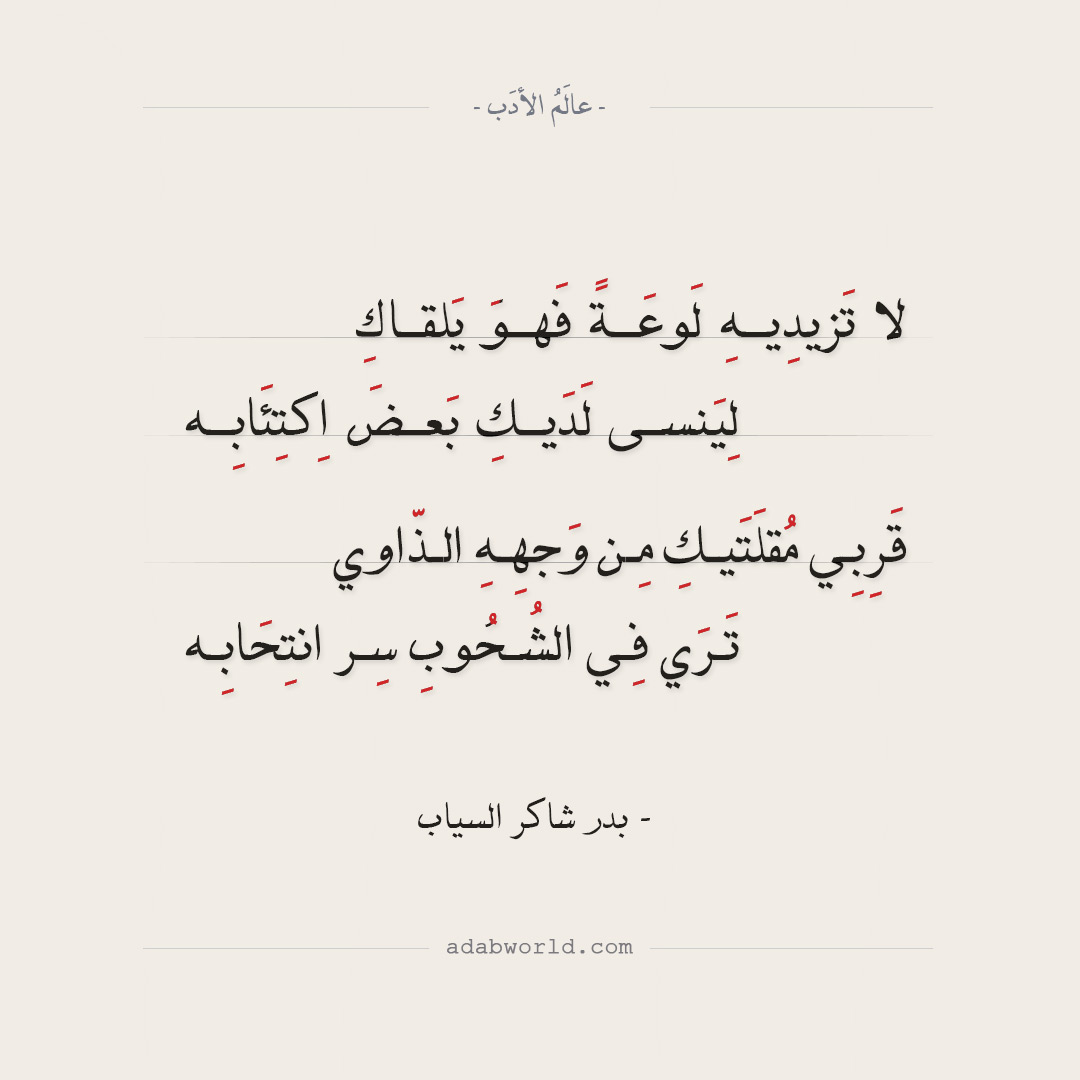 - عالَمُ الأدَب -
لا تَزيدِيــهِ لَوعَــةً فَهــوَ يَلقــاكِ
لِيَنســى لَدَيــكِ بَعــضَ اِكتِئَابِــه
قَرِبِـي مُقلَتَيـكِ مِـن وَجهِـهِ الـذّاوي
تَـرَي فِـي الشُـحُوبِ سِـر انتِحَابِـه
- بدر شاكر السياب
adabworld.com